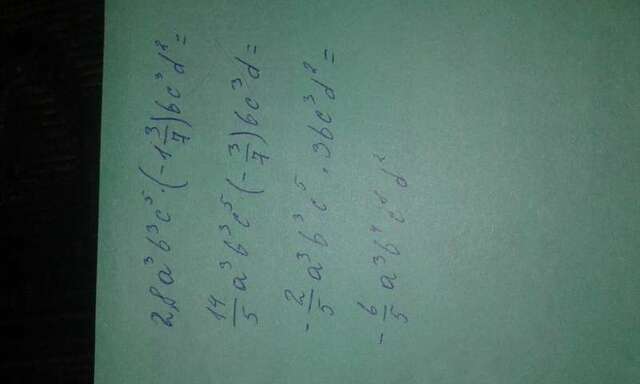 2,8a³b³c⁵·(-1 3/7)bc³d²=
14/5 a³b³c⁵·(-3/7)bc³d=
-2/5 a³b³c⁵·3bc³d²=
-6/5 a³b⁴c⁸d²